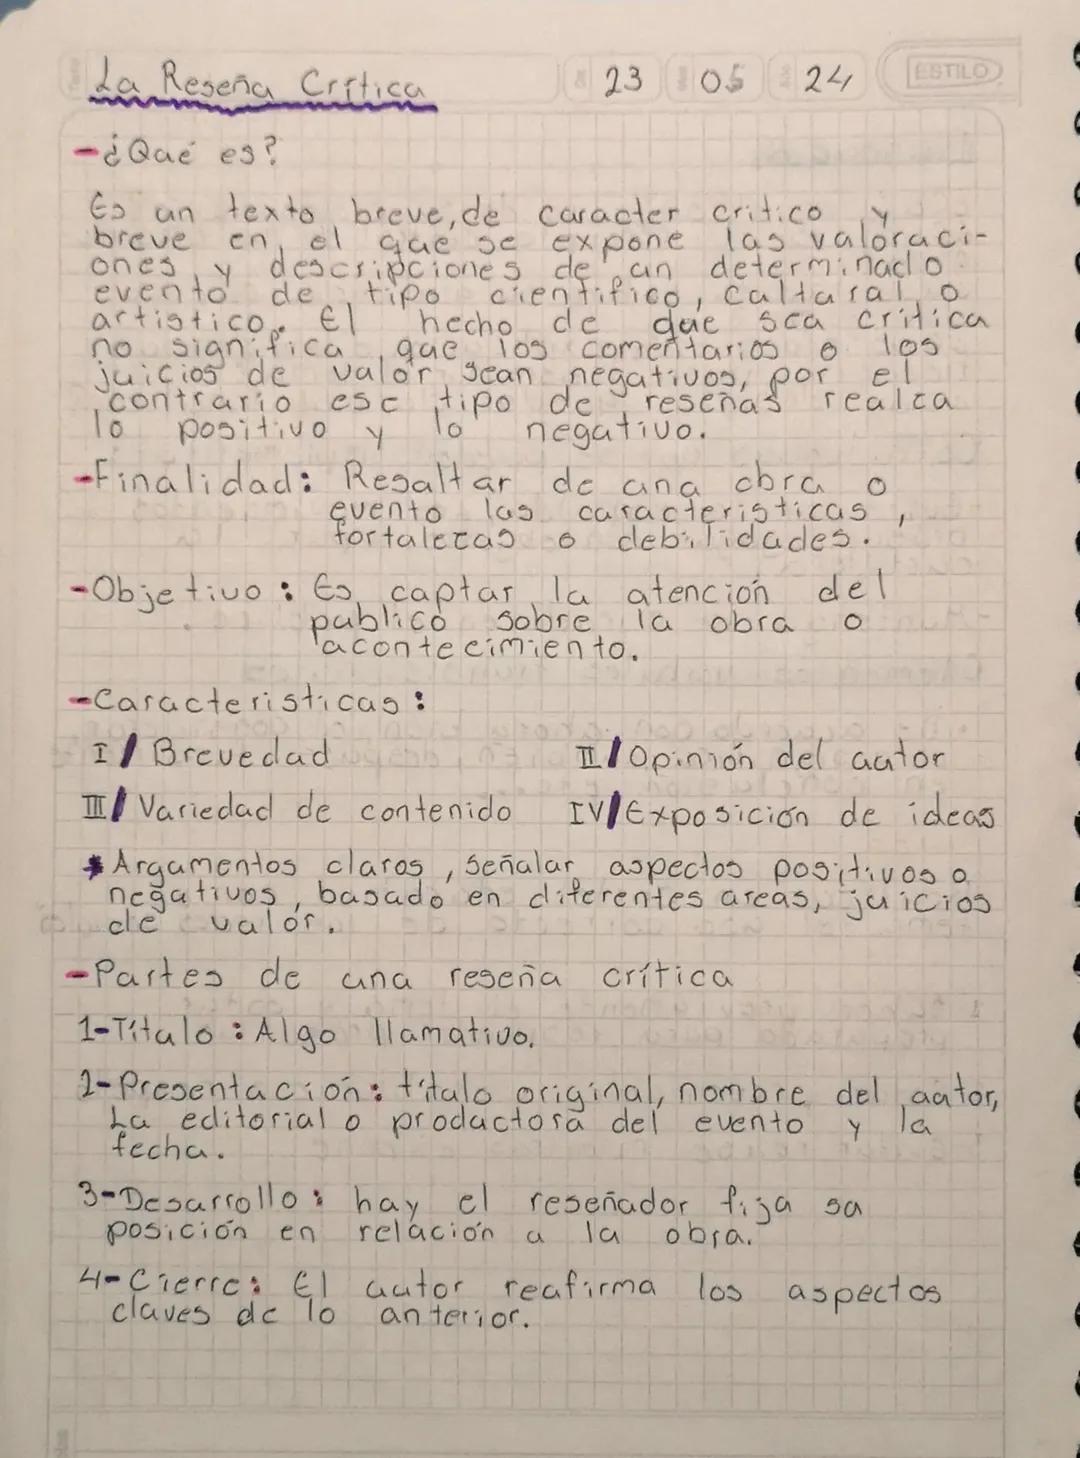 La Reseña Crítica 23 05 24 ESTILO
-¿Qué es?
Es un texto breve, de caracter critico y
breve en el que se expone las valoraci-
ones y descripciones de un determinado
evento de tipo cientifico, cultural o
artistico. El hecho de que sea critica
no significa que los comentarios o los
juicios de valor sean negativos, por el
contrario ese tipo de reseñas realza
lo positivo y lo negativo.
-Finalidad: Resaltar de una obra o
evento las caracteristicas,
fortalezas o debilidades.
-Objetivo: Es captar la atención del
publico sobre la obra o
acontecimiento.
-Caracteristicas:
I/ Brevedad II/ Opinión del autor
III/ Variedad de contenido IV/ Exposición de ideas
* Argumentos claros, señalar aspectos positivos o
negativos, basado en diferentes areas, juicios
de valor.
-Partes de una reseña crítica
1-Título: Algo llamativo.
2-Presentación: título original, nombre del autor,
La editorial o productora del evento y la
fecha.
3-Desarrollo: hay el reseñador fija su
posición en relación a la obra.
4-Cierre: El autor reafirma los aspectos
claves de lo anterior.